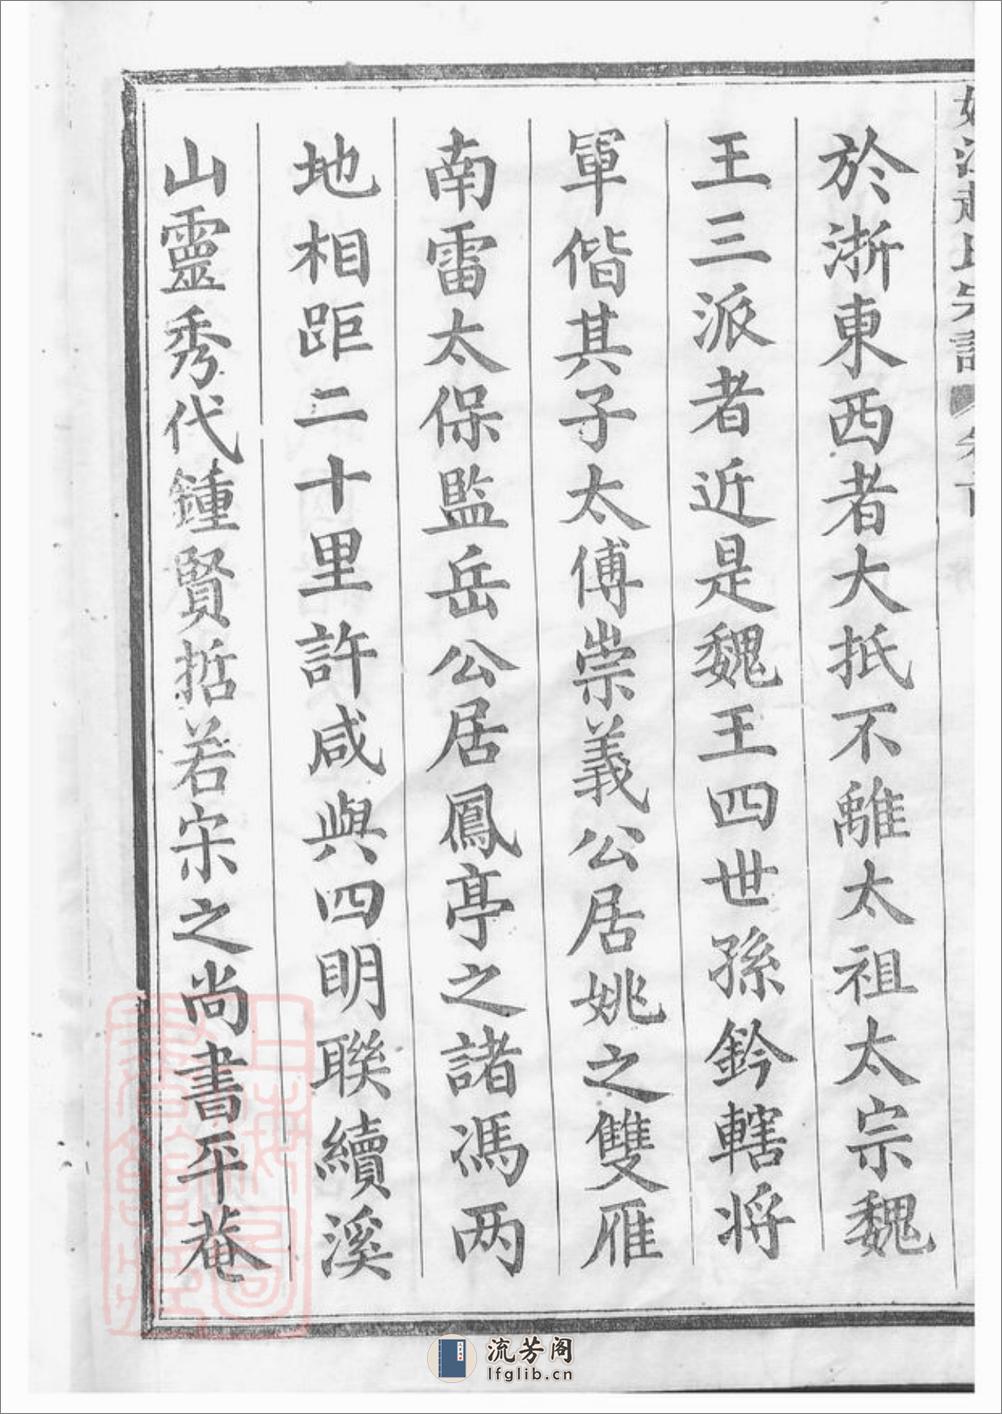 於浙東西者大抵不離太祖太宗魏
王三派者近是魏王四世孫鈐轄將
軍偕其子太傅崇義公居姚之雙雁
南雷太保監岳公居鳳亭之諸馮两
地相距二十里許咸與四明聯續溪
山靈秀代鍾賢哲若宋之尚書平菴
流芳阁
lfglib.cn